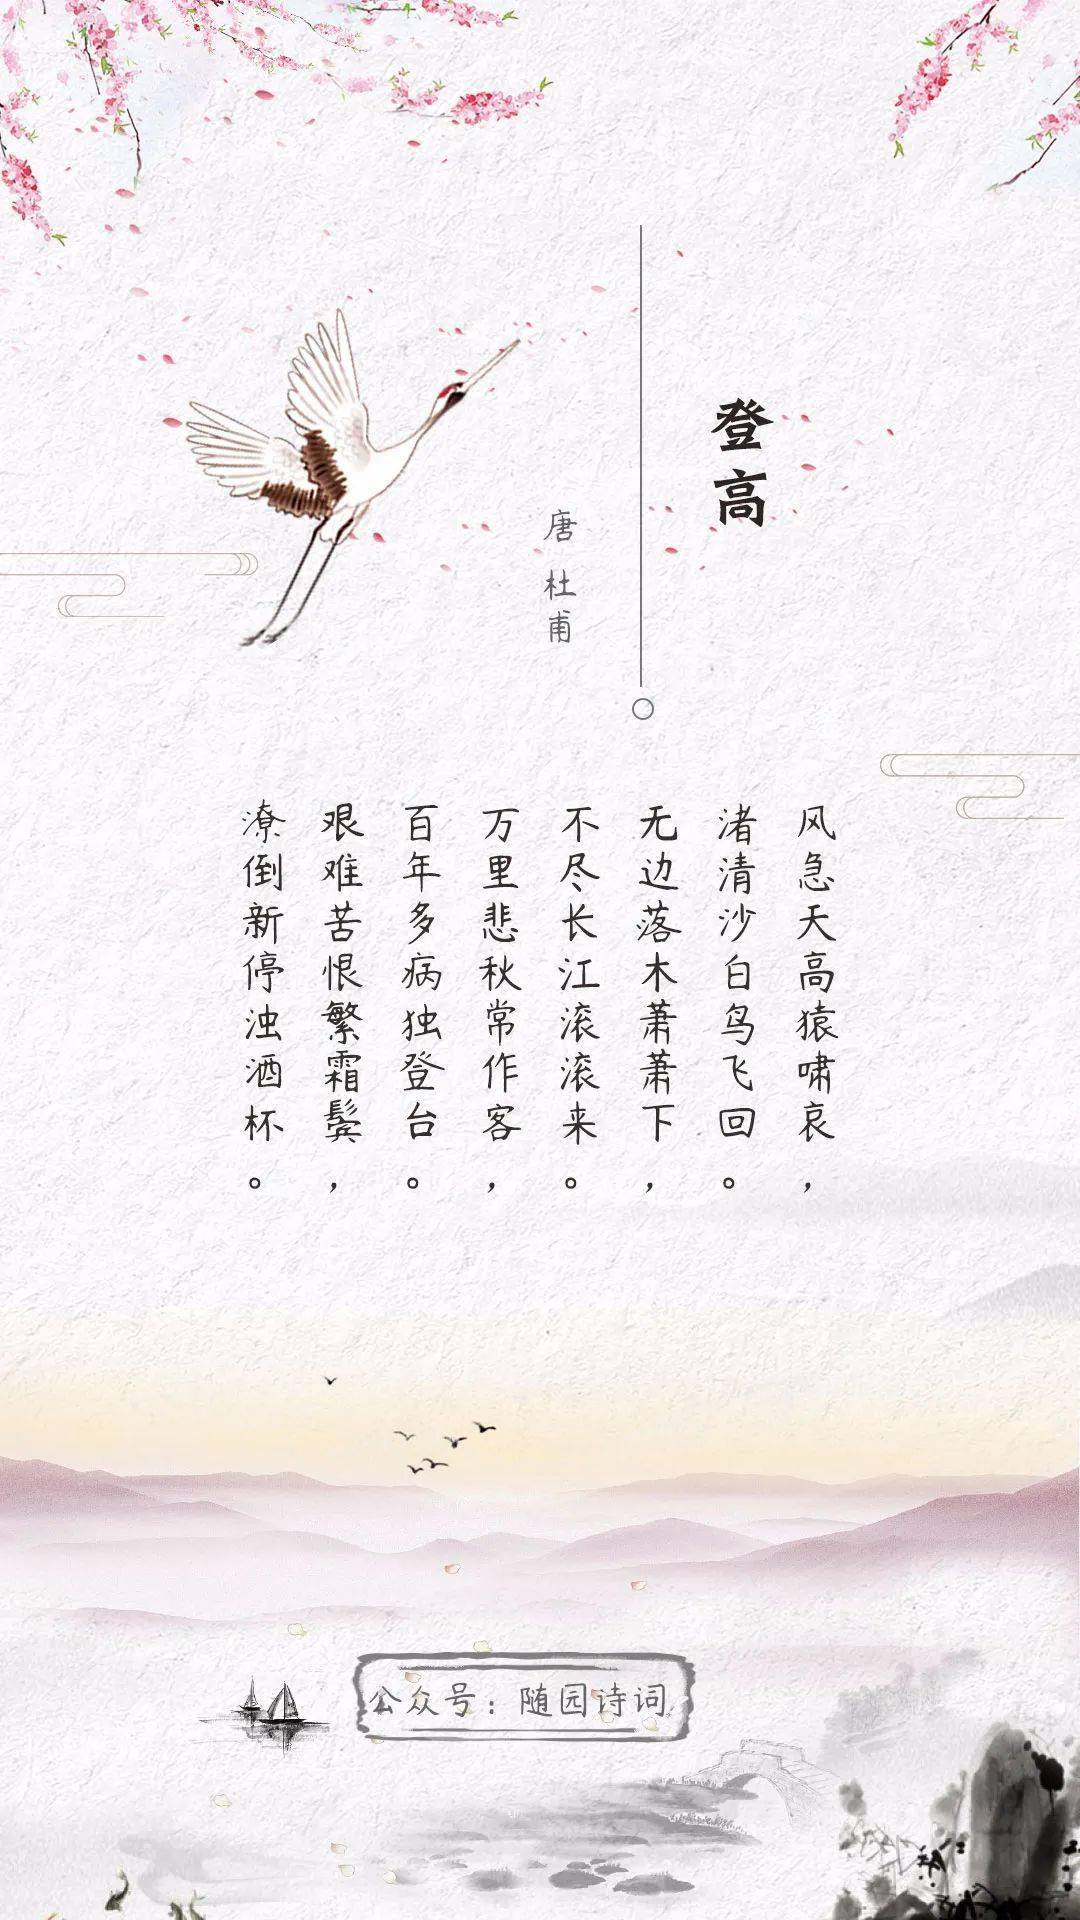 登高
唐 杜甫
风急天高猿啸哀，
渚清沙白鸟飞回。
无边落木萧萧下，
不尽长江滚滚来。
万里悲秋常作客，
百年多病独登台。
艰难苦恨繁霜鬓，
潦倒新停浊酒杯。
公众号：随园诗词